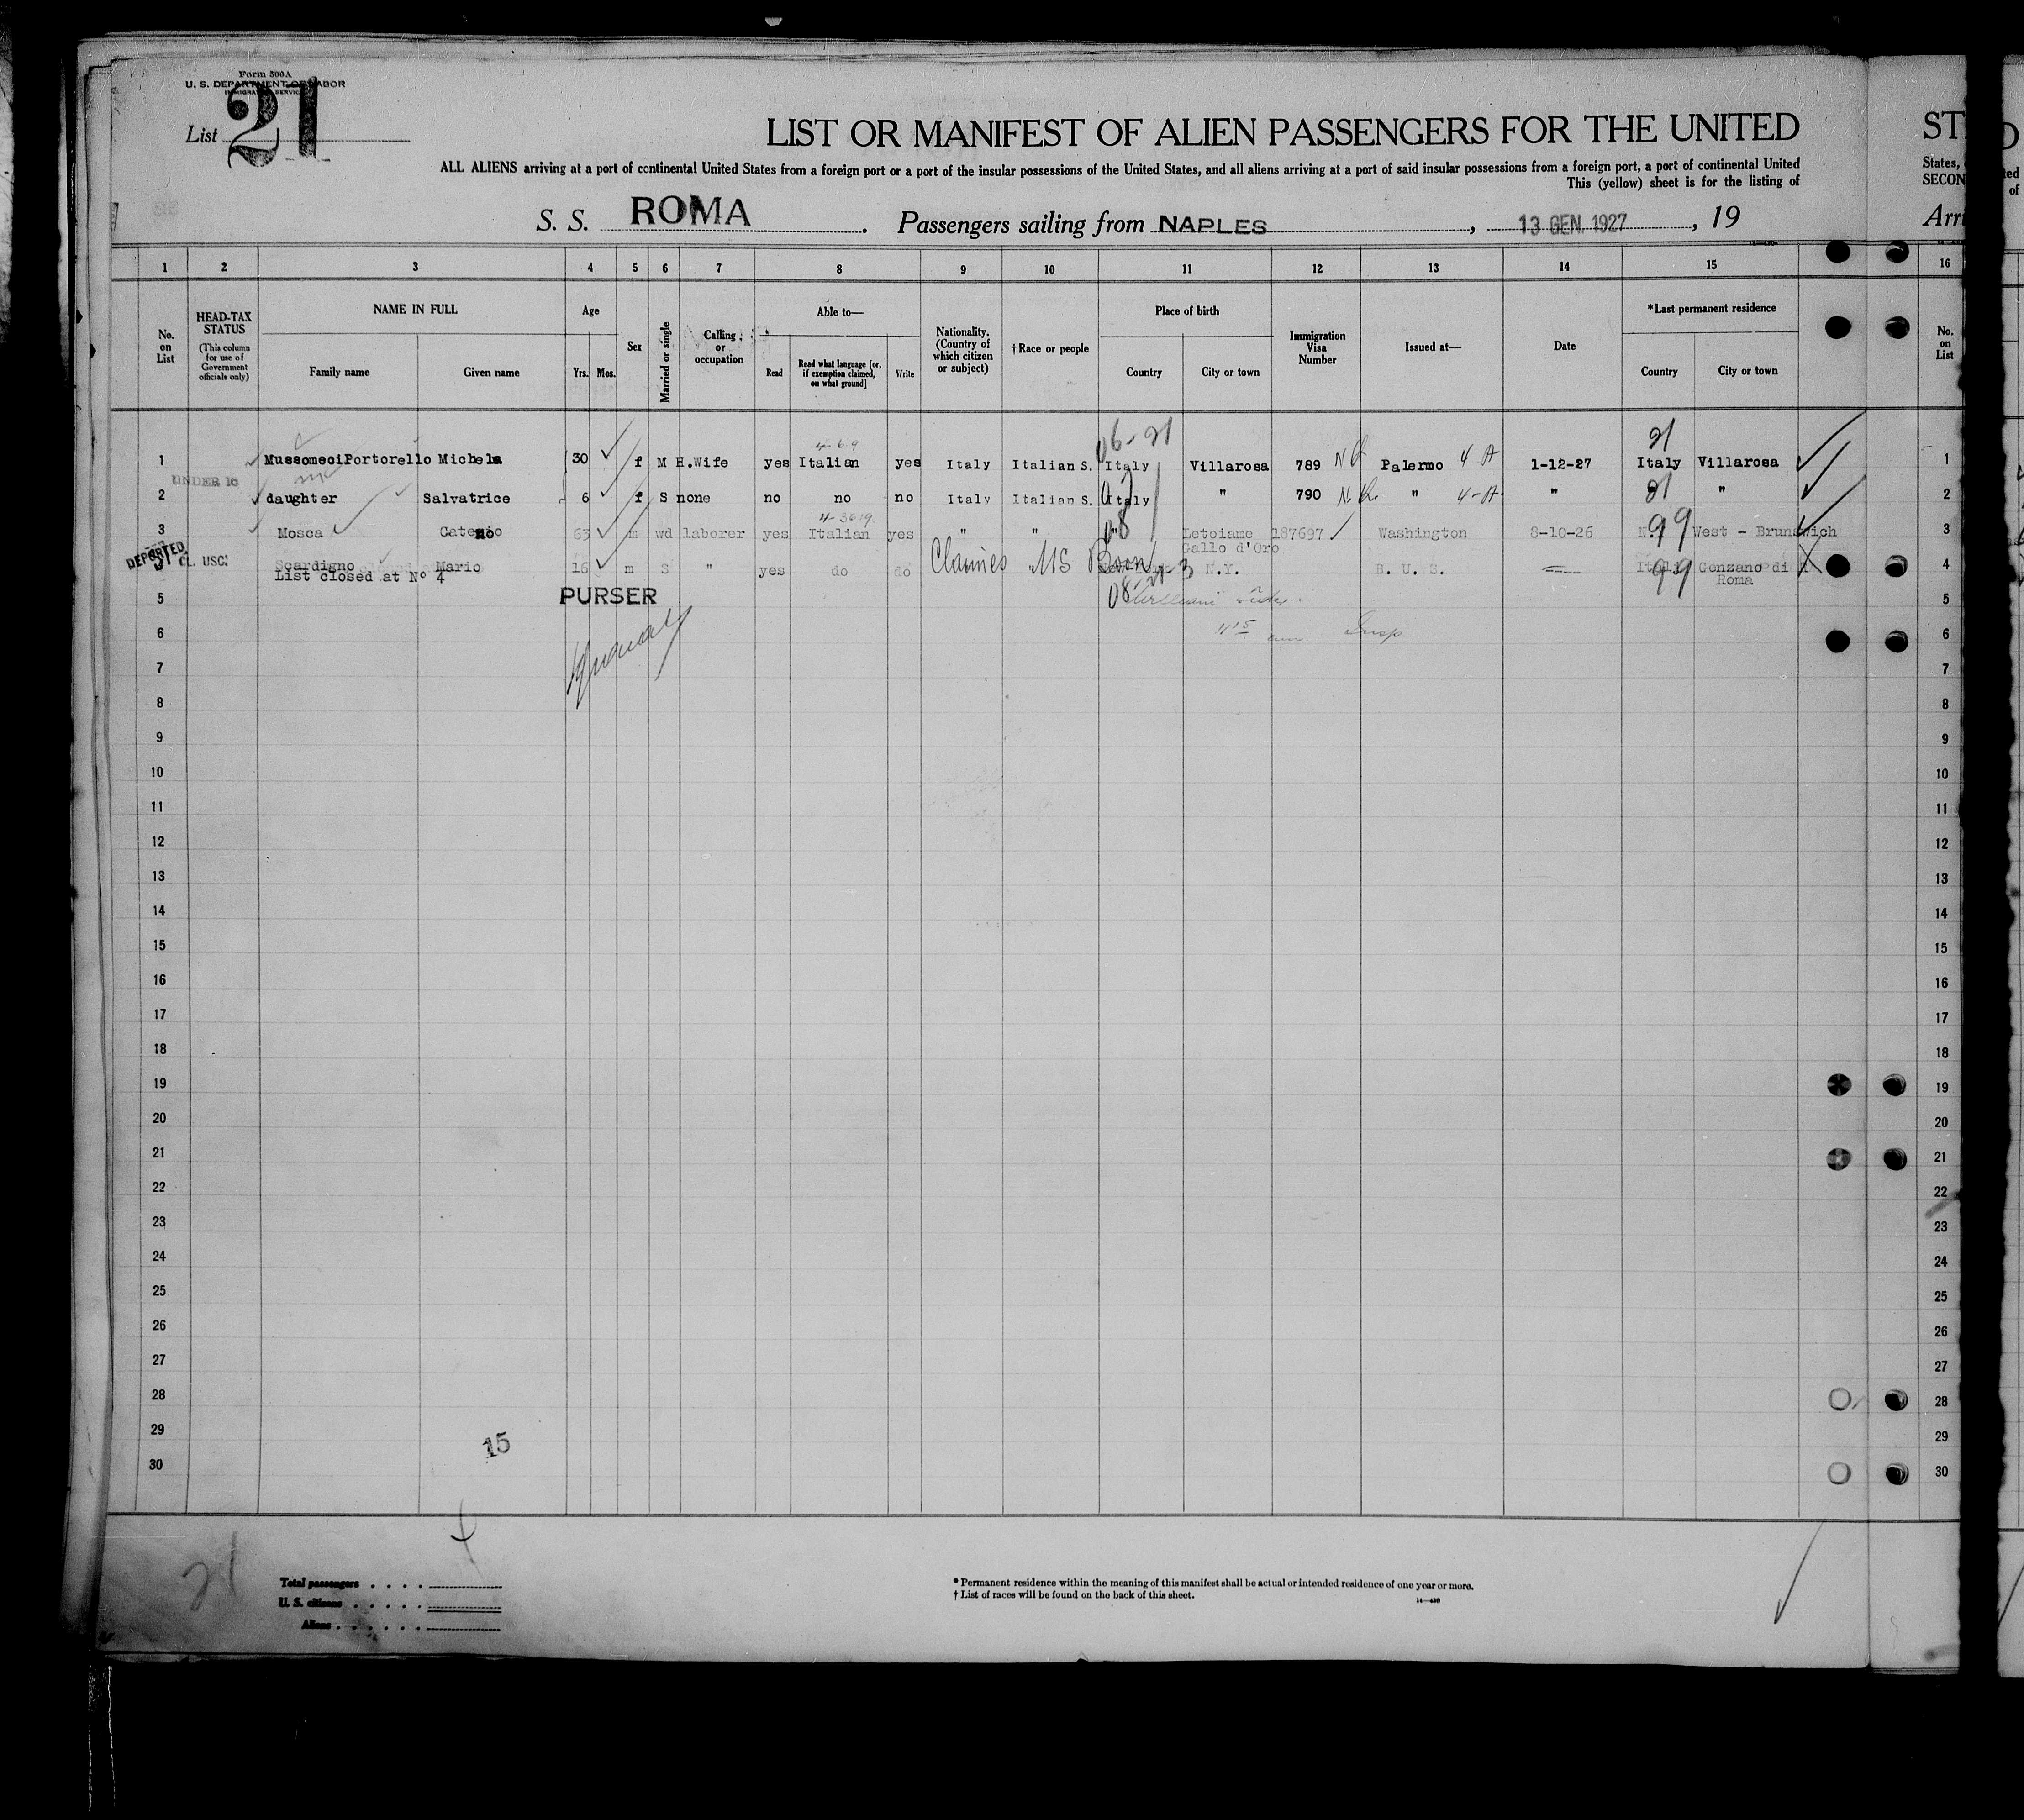 Form 500A
U. S. DEPARTMENT OF LABOR
IMMIGRATION SERVICE
List 21
LIST OR MANIFEST OF ALIEN PASSENGERS FOR THE UNITED
ST
ALL ALIENS arriving at a port of continental United States from a foreign port or a port of the insular possessions of the United States, and all aliens arriving at a port of said insular possessions from a foreign port, a port of continental United
States,
This (yellow) sheet is for the listing of
SECON
S. S. ROMA. Passengers sailing from NAPLES, 13 GEN. 1927, 19
Arri
1 2 3 4 5 6 7 8 9 10 11 12 13 14 15 16
No. on List
HEAD-TAX STATUS (This column for use of Government officials only)
NAME IN FULL
Family name
Given name
Age
Yrs. Mos.
Sex
Married or single
Calling or occupation
Able to—
Read
Read what language [or, if exemption claimed, on what ground]
Write
Nationality. (Country of which citizen or subject)
†Race or people
Place of birth
Country
City or town
Immigration Visa Number
Issued at—
Date
*Last permanent residence
Country
City or town
No. on List
4-69 06-21 21
1 MussomeciPortorello Michela 30 f M H.Wife yes Italian yes Italy Italian S. Italy Villarosa 789 Palermo 4 A 1-12-27 Italy Villarosa 1
UNDER 16
2 daughter Salvatrice 6 f S none no no no Italy Italian S. Italy " 790 " 4-A " 21 " 2
3 Mosca 63 m wd laborer yes Italian yes " " 08 Letoiame Gallo d'Oro 187697 Washington 8-10-26 99 West - Brunswich 3
DEPORTED
CL. USC.
4 Scardigno Mario 16 m S " yes do do Claimes US Born N.Y. B. U. S. 99 Genzano di Roma 4
List closed at No 4
PURSER
5 08 5
6 1115 am. Insp 6
7 7
8 8
9 9
10 10
11 11
12 12
13 13
14 14
15 15
16 16
17 17
18 18
19 19
20 20
21 21
22 22
23 23
24 24
25 25
26 26
27 27
28 28
29 29
15
30 30
21
Total passengers
U. S. citizens
Aliens
* Permanent residence within the meaning of this manifest shall be actual or intended residence of one year or more.
† List of races will be found on the back of this sheet.
14—430